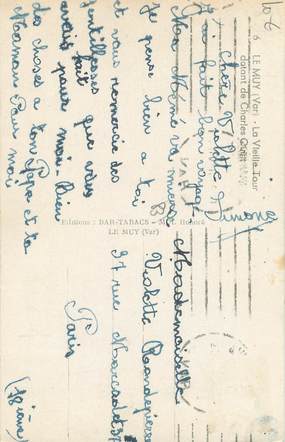 10-6
6 LE MUY (Var) - La Vieille Tour
datant de Charles Quint
Chère Violette
J'ai fait bon voyage
Ma Mémé va mieux
je pense bien à toi
et vous remercie des
gentillesses que vous
avais fait
pour moi. Bien
des choses a ton Papa et ta
Maman Pour moi
Simone
Editions : BAR-TABACS -
LE MUY (Var)
Mademoiselle
Violette
37 rue Marcadet
Paris
(18 ième)